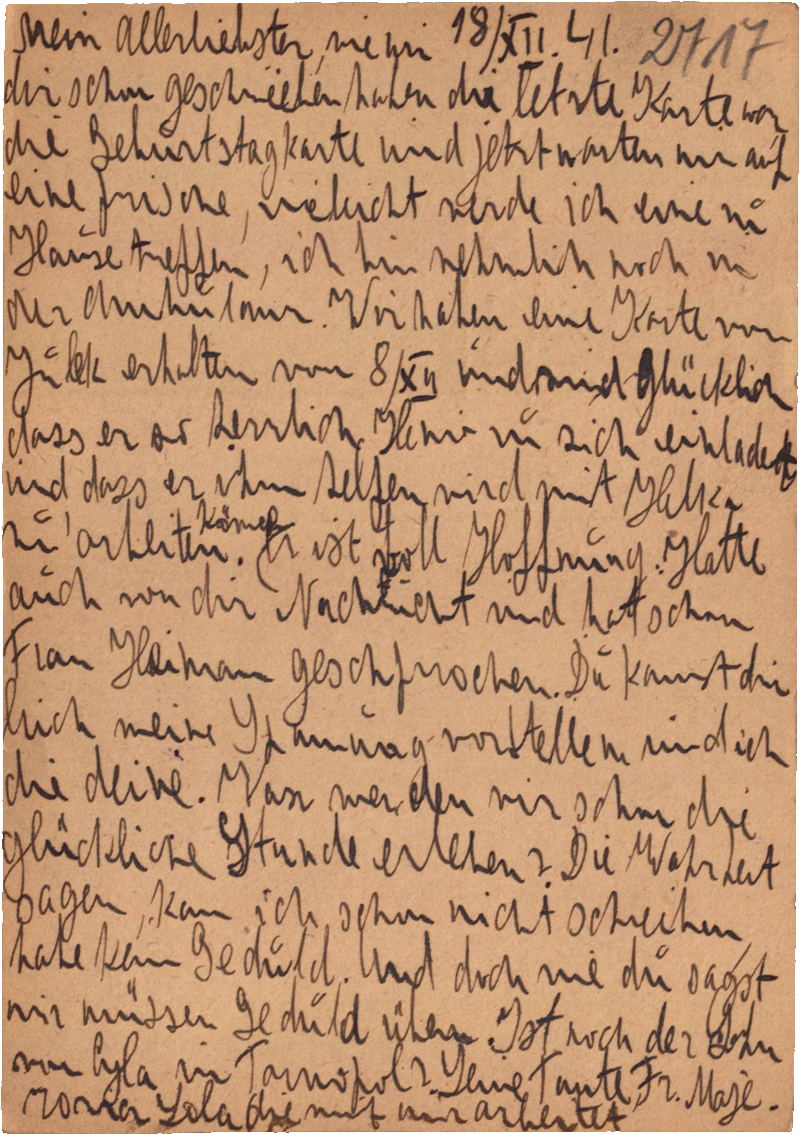 Mein Allerliebster, wie wir 18/XII. 41. 2717
dir schon geschrieben haben die letzte Karte war
die Geburtstagkarte und jetzt warten wir auf
eine frische, vieleicht werde ich eine zu
Hause treffen, ich bin nehmlich noch in
der Ambulanz. Wir haben eine Karte von
Julek erhalten von 8/XII und sind glücklich
dass er so herrlich Heni zu sich einladet
und dass er ihm helfen wird mit Hilka
zu arbeiten können. Er ist voll Hoffnung. Hatte
auch von dir Nachricht und hat schon
Frau Heiman geschprochen. Du kannst dir
auch meine Spannung vorstellen und ich
die deine. Wan werden wir schon die
glückliche Stunde erleben? Die Wahrheit
sagen, kan ich schon nicht schreiben,
habe kein Geduld. Und doch wie du sagst
wir müssen Geduld üben. Ist noch der Sohn
von Cyla in Tarnopol? Seine Tante, Fr. Maje-
rowa Lola die mit mir arbeitet